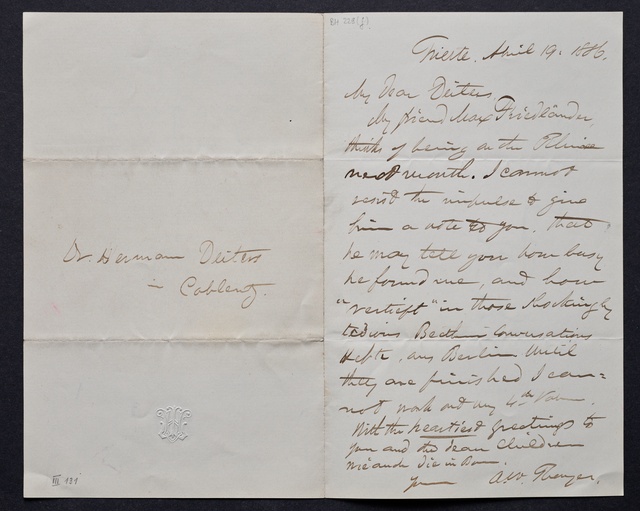 Dr. Herman Deiters
in
Coblenz.
III 131
Trieste. April 19. 1886.
My Dear Deiters
My friend Max Friedländer,
thinks of being on the Rhine
next month. I cannot
resist the impulse to give
him a note to you, that
he may tell you how busy
he found me, and how
"vertieft" in those shockingly
tedious Beeth Conversations
Hefte, aus Berlin. Until
they are finished I can=
not work out my 4th
With the heartiest greetings to
you and the dear Children
A W. Thayer.